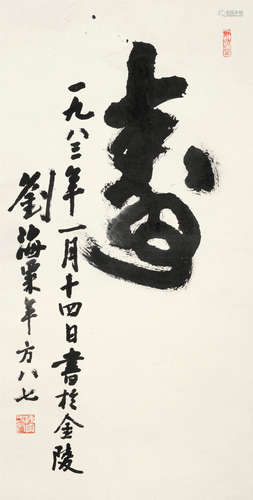 壽
一九八三年一月十四日書於金陵
劉海粟年方八七